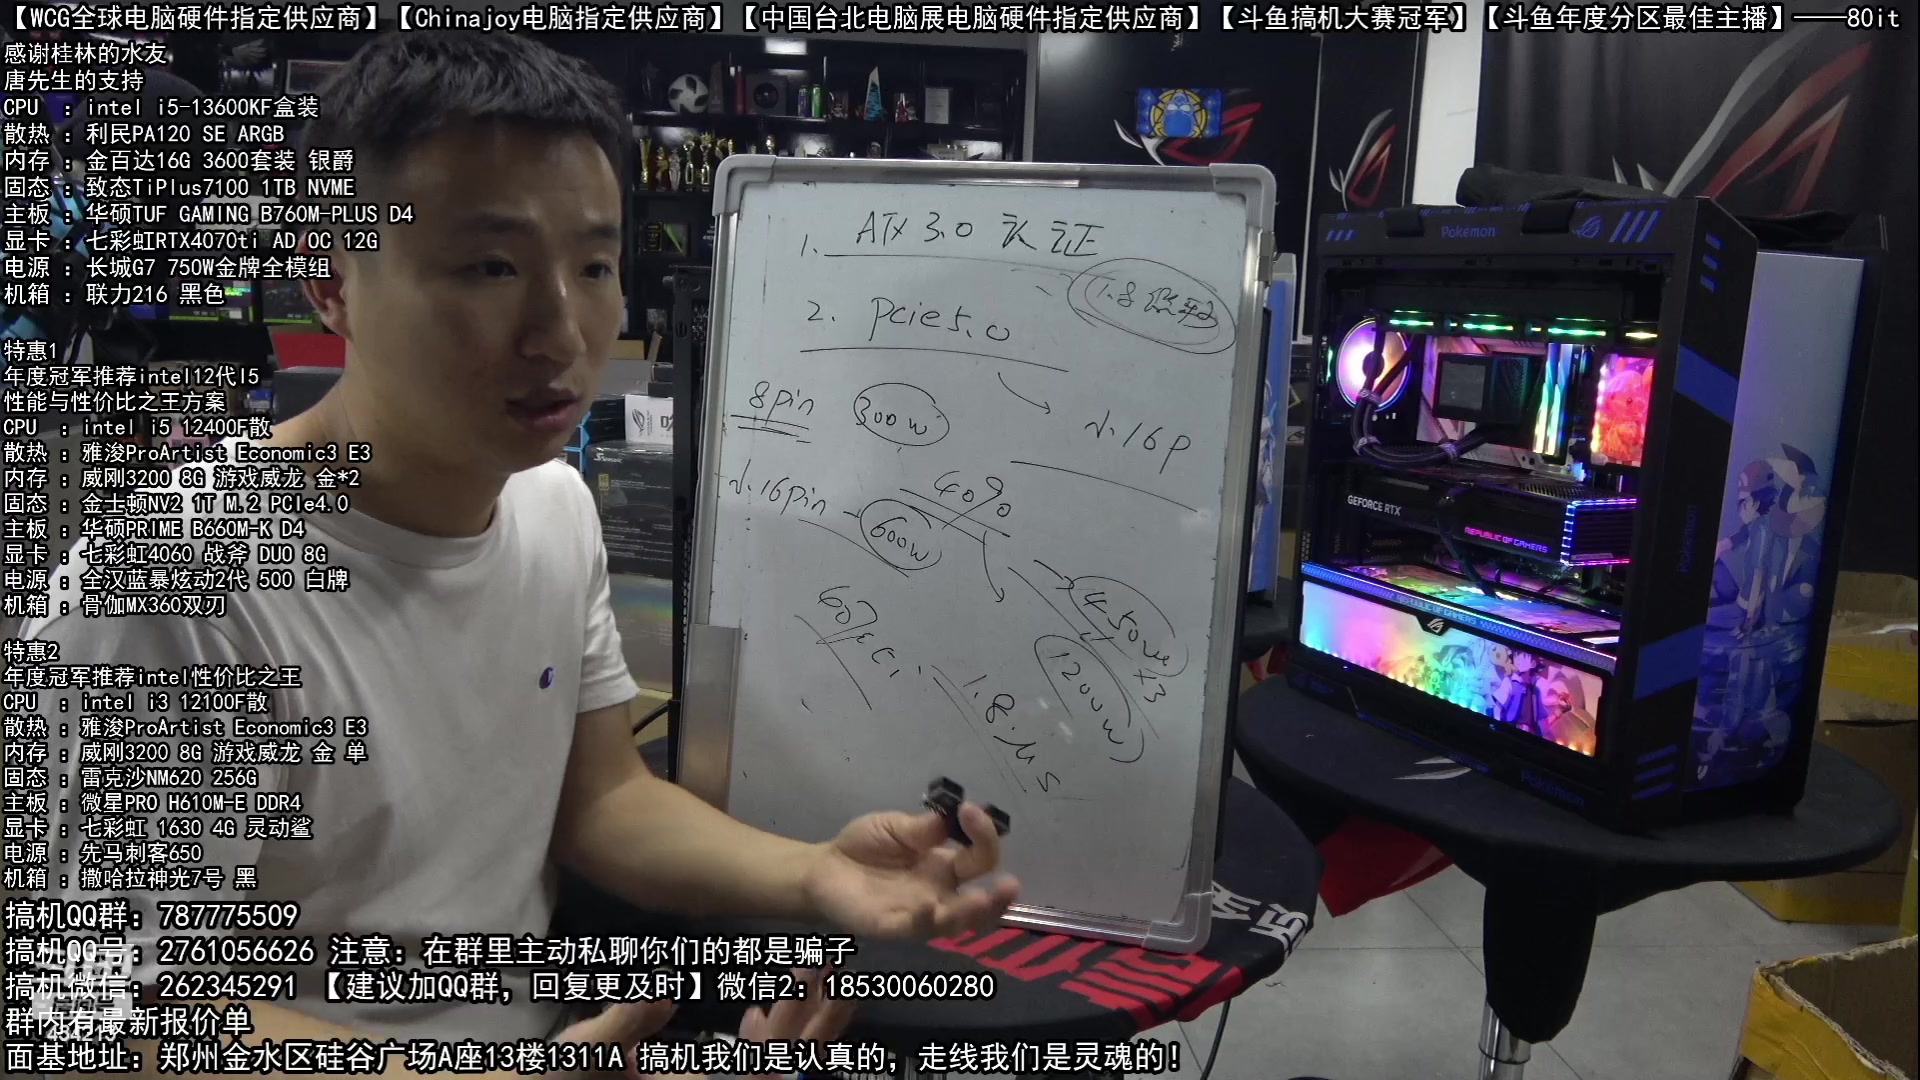 【WCG全球电脑硬件指定供应商】【Chinajoy电脑指定供应商】【中国台北电脑展电脑硬件指定供应商】【斗鱼搞机大赛冠军】【斗鱼年度分区最佳主播】——80it
感谢桂林的水友
唐先生的支持
CPU ：intel i5-13600KF盒装
散热 ：利民PA120 SE ARGB
内存 ：金百达16G 3600套装 银爵
固态 ：致态TiPlus7100 1TB NVME
主板 ：华硕TUF GAMING B760M-PLUS D4
显卡 ：七彩虹RTX4070ti AD OC 12G
电源 ：长城G7 750W金牌全模组
机箱 ：联力216 黑色
特惠1
年度冠军推荐intel12代I5
性能与性价比之王方案
CPU ：intel i5 12400F散
散热 ：雅浚ProArtist Economic3 E3
内存 ：威刚3200 8G 游戏威龙 金*2
固态 ：金士顿NV2 1T M.2 PCIe4.0
主板 ：华硕PRIME B660M-K D4
显卡 ：七彩虹4060 战斧 DUO 8G
电源 ：全汉蓝暴炫动2代 500 白牌
机箱 ：骨伽MX360双刃
特惠2
年度冠军推荐intel性价比之王
CPU ：intel i3 12100F散
散热 ：雅浚ProArtist Economic3 E3
内存 ：威刚3200 8G 游戏威龙 金 单
固态 ：雷克沙NM620 256G
主板 ：微星PRO H610M-E DDR4
显卡 ：七彩虹 1630 4G 灵动鲨
电源 ：先马刺客650
机箱 ：撒哈拉神光7号 黑
搞机QQ群：787775509
搞机QQ号：2761056626 注意：在群里主动私聊你们的都是骗子
搞机微信：262345291 【建议加QQ群，回复更及时】微信2：18530060280
群内有最新报价单
面基地址：郑州金水区硅谷广场A座13楼1311A 搞机我们是认真的，走线我们是灵魂的！
1. ATX 3.0 认证
2. Pcie5.0
8pin 300w
小16p
小16pin 600w
40%
450w x3
1200w
Pokemon
GEFORCE RTX
REPUBLIC OF GAMERS
REPUBLIC OF GAMERS
Pokemon
Pokemon